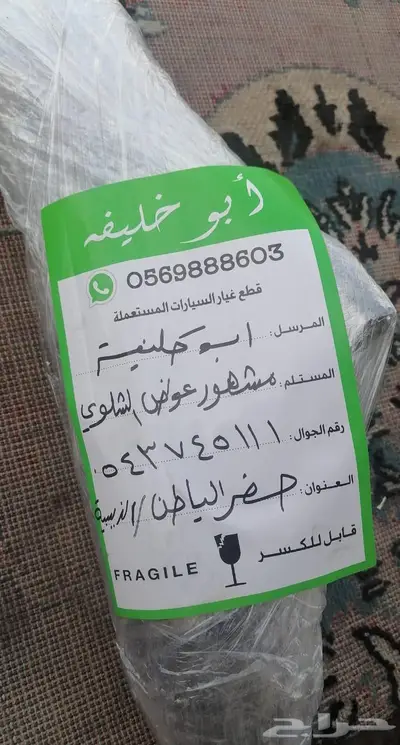 أبو خليفه
0569888603
قطع غيار السيارات المستعملة
المرسل: ابو خليفة
المستلم: مشهور عواض الشلوي
رقم الجوال: ٠٥٤٣٧٤٥١١١
العنوان: حفر الباطن / الذيبية
قابل للكسر
FRAGILE
حراج